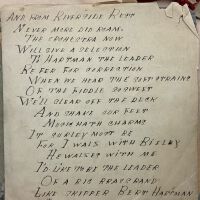 And from Riverside Kett
Never more did roam.
The orchestra now
Will give a selection
To Hartman the leader
Refer for correction
When we hear the soft strains
Of the fiddle so sweet
We'll clear off the deck
And shake our feet
Music hath charms
It surely must be
For I walk with
He walks with me
I'd like to be the leader
Of a big brass band
Like skipper Bert Hartman